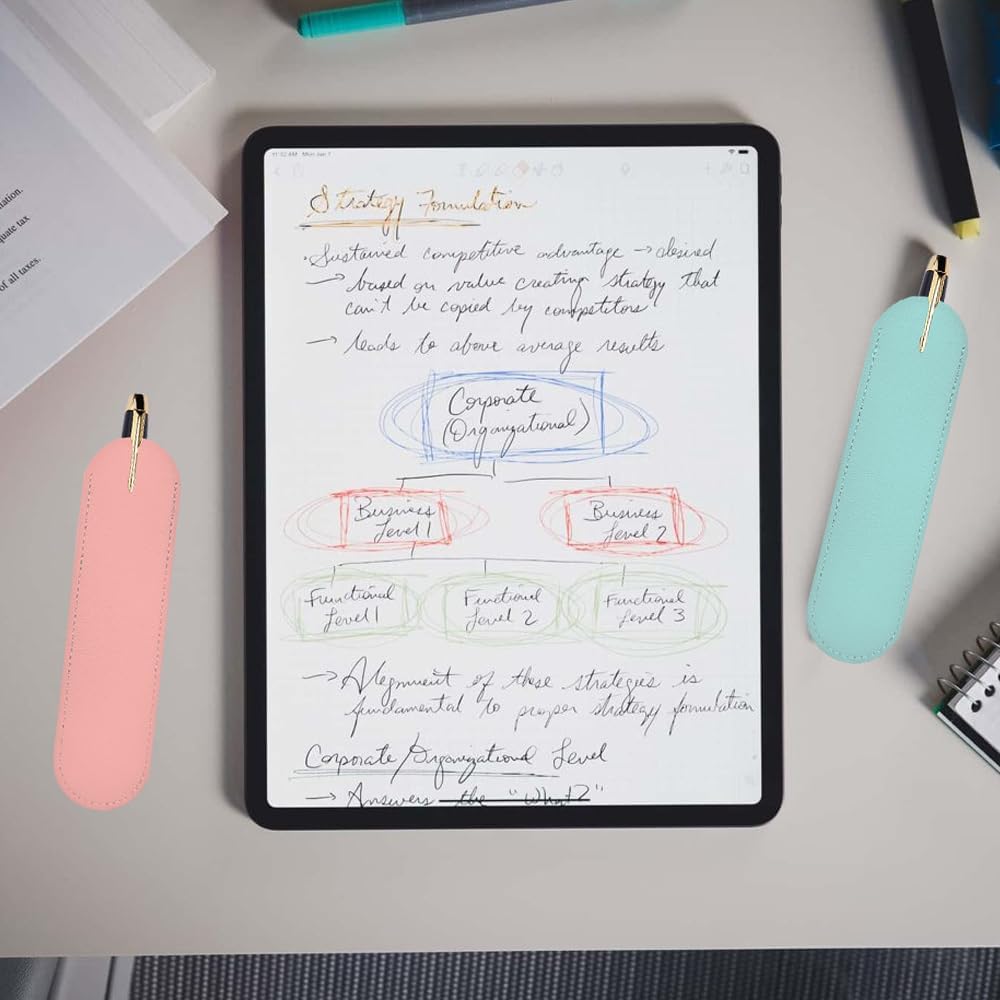 ation.
quate tax
of all taxes.
11:32 AM Mon Jan 1
Strategy Formulation
• Sustained competitive advantage → desired
→ based on value creating strategy that
can't be copied by competitors
→ leads to above average results
Corporate
(Organizational)
Business
Level 1
Business
Level 2
Functional
Level 1
Functional
Level 2
Functional
Level 3
→ Alegnment of these strategies is
fundamental to proper strategy formulation
Corporate/Organizational Level
→ Answers the "What?"